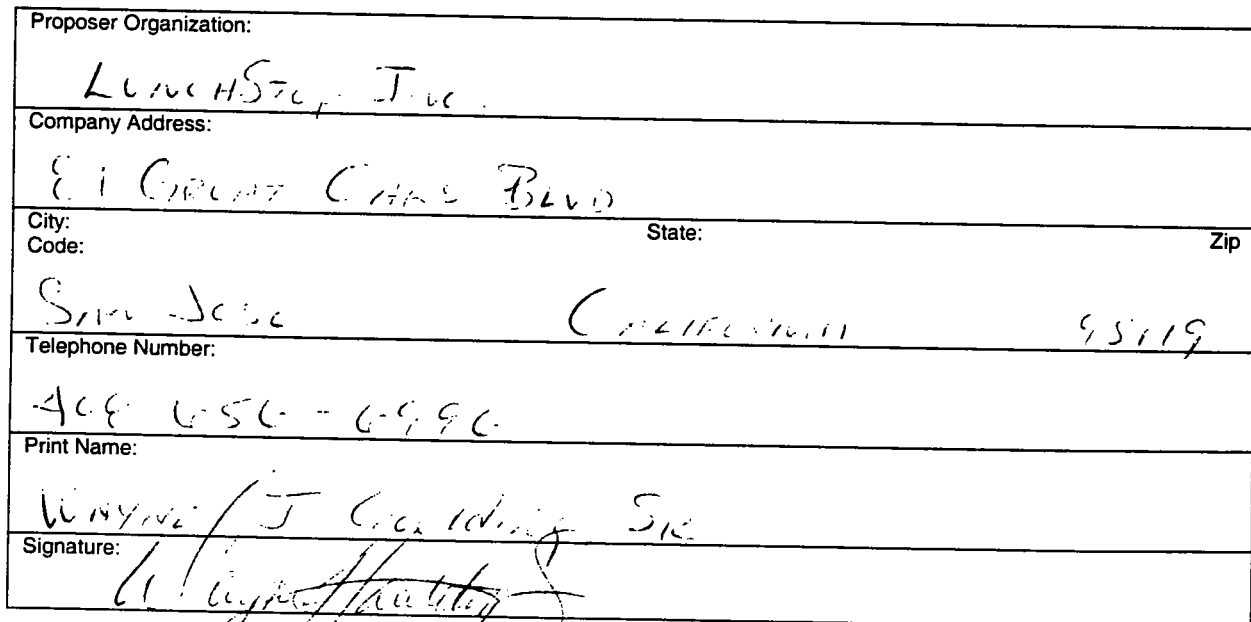 Proposer Organization:
LUNCHSTOP INC.
Company Address:
81 GREAT OAKS BLVD
City: State: Zip
Code:
SAN JOSE CALIFORNIA 95119
Telephone Number:
408
Print Name:
WAYNE J Goulding SR
Signature:
Wayne